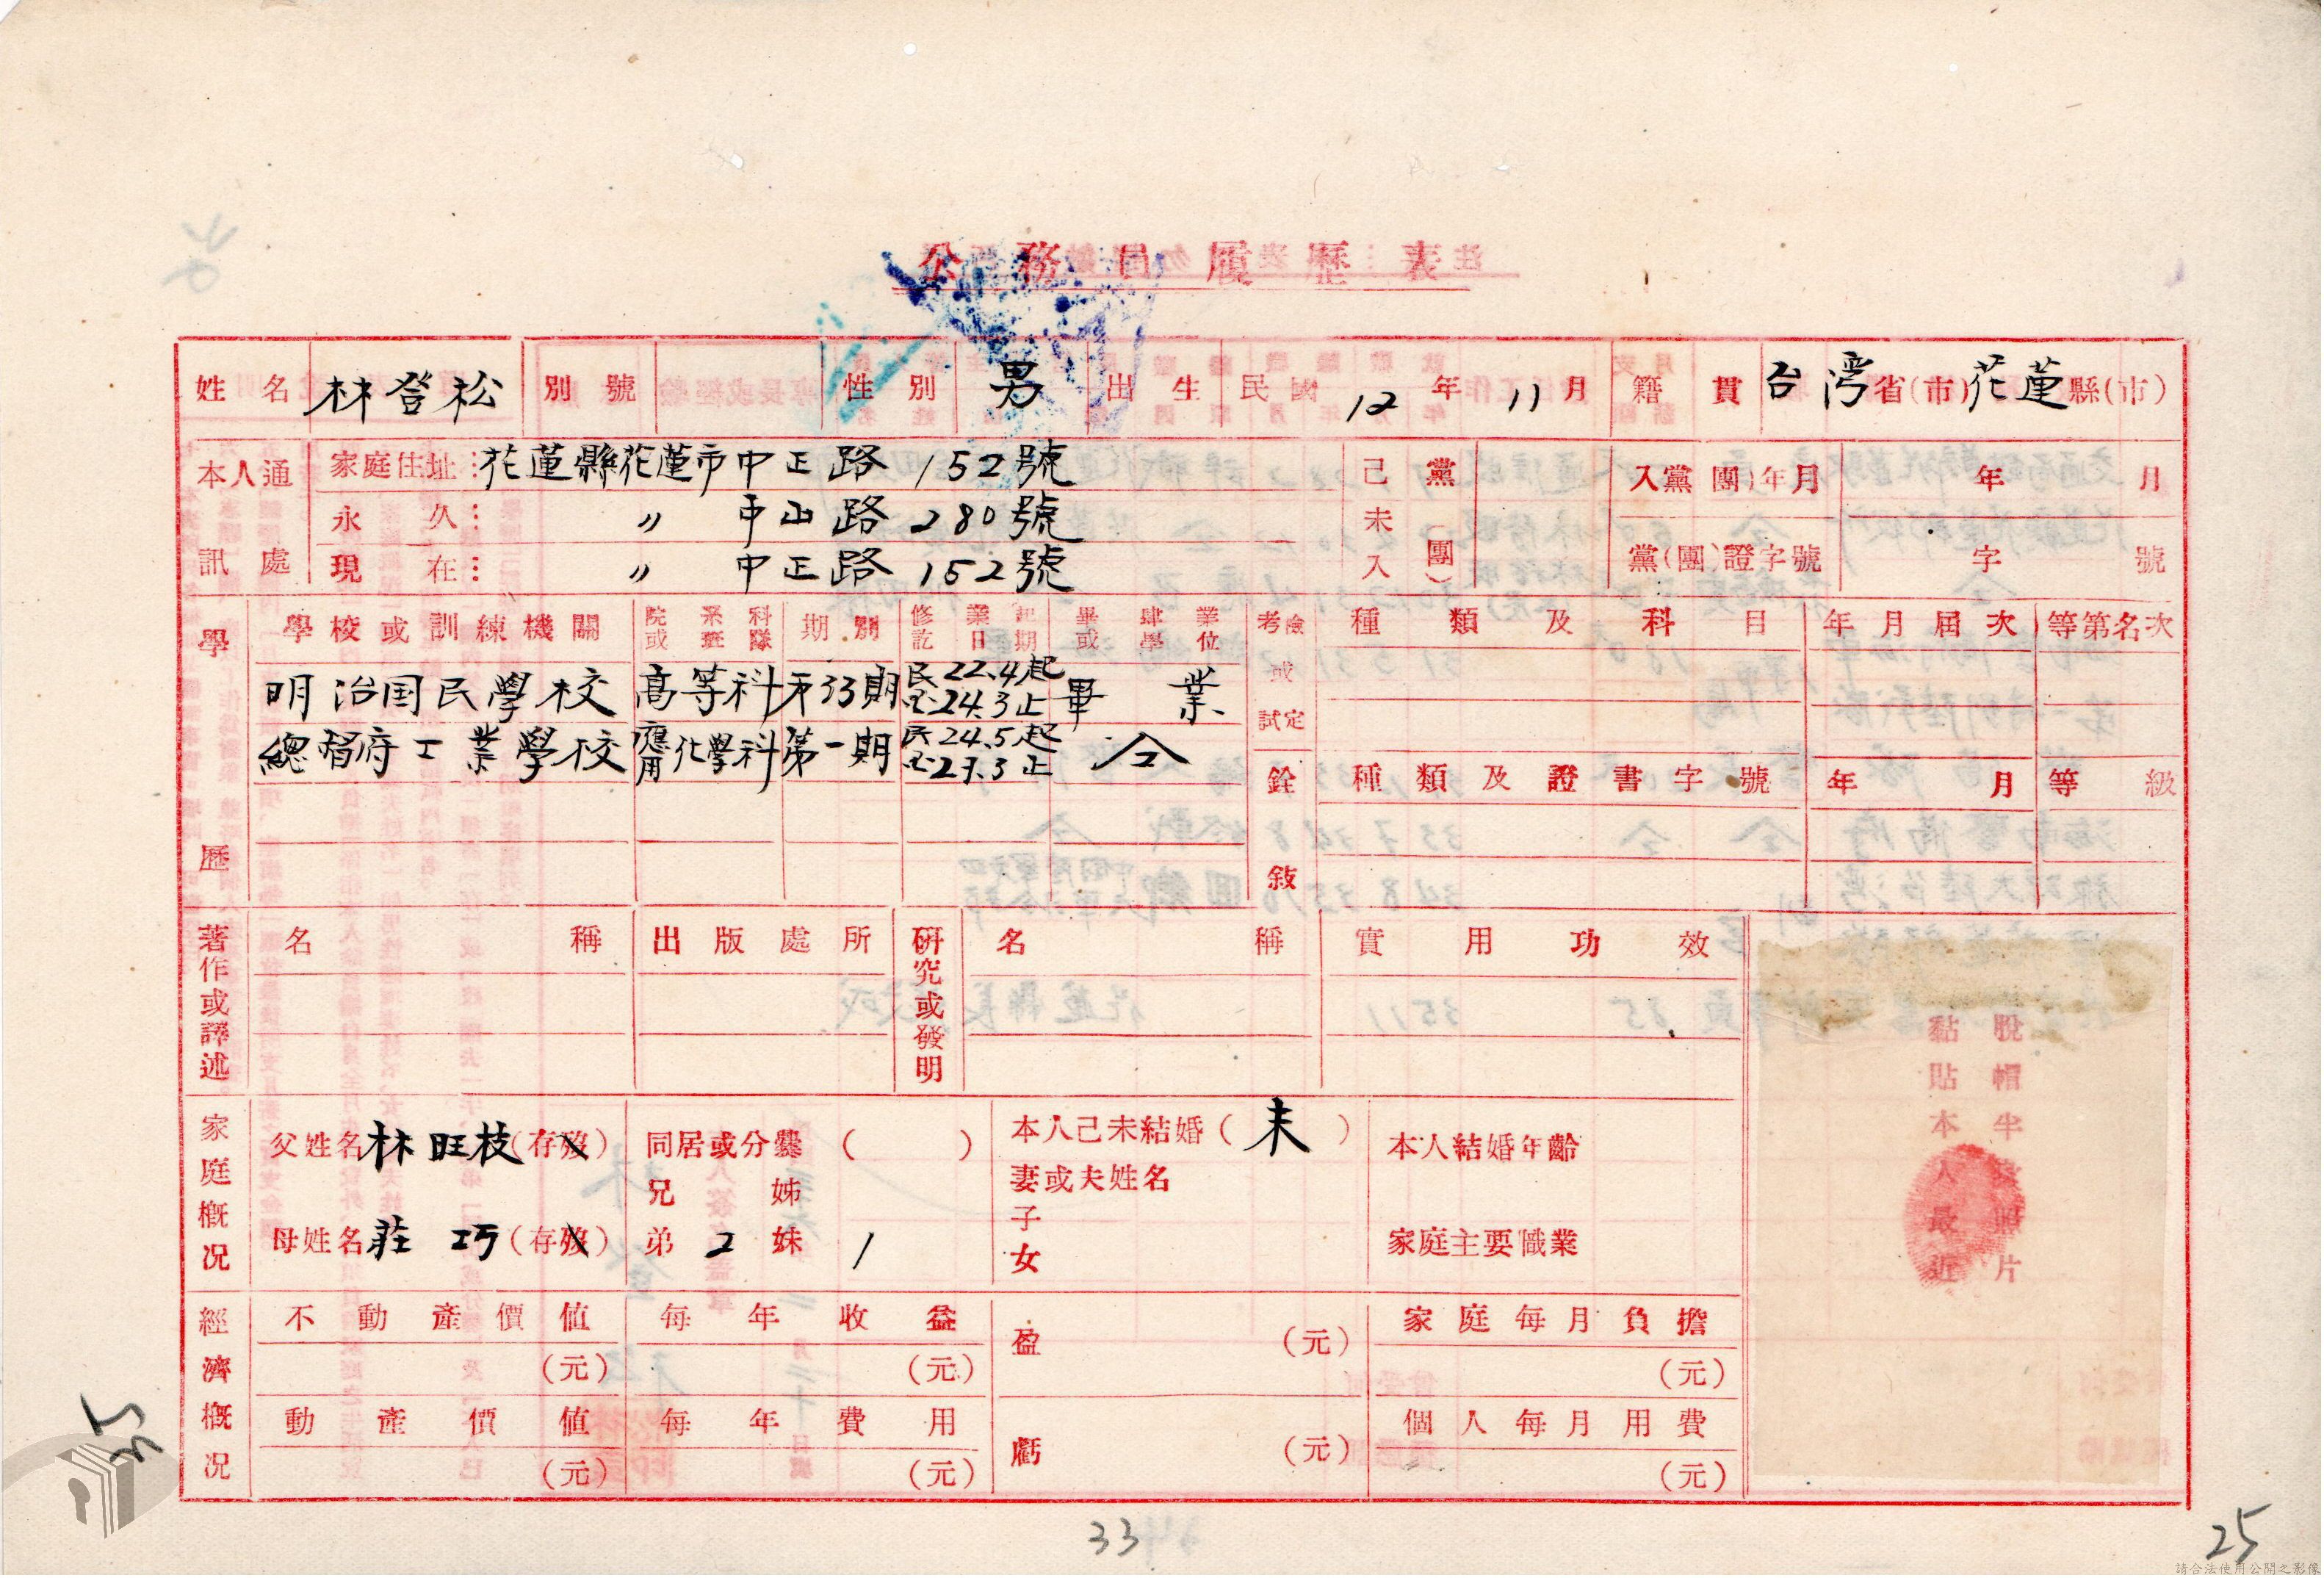 公務員履歷表
姓名 林登松 別號 性別 男 出生 民國 12 年 11 月 籍貫 台灣 省(市) 花蓮 縣(市)
本人通訊處 家庭住址: 花蓮縣花蓮市中正路152號
永久: 〃 中山路280號
現在: 〃 中正路152號
己未入黨(團) 入黨(團)年月 年 月
黨(團)證字號 字 號
學歷 學校或訓練機關 院或系科班隊 期別 修業起訖日期 畢肄業或學位
明治国民學校 高等科 第33期 民22.4起 24.3止 畢業
總督府工業學校 應用化學科 第一期 民24.5起 止 仝
考試或檢定 種類及科目 年月屆次 等第名次
銓敘 種類及證書字號 年月 等級
著作或譯述 名稱 出版處所
研究或發明 名稱 實用功效
家庭概況 父姓名 林旺枝 (存歿)
母姓名 莊巧 (存歿)
同居或分爨( )
兄 姊
弟 2 妹 1
本人己未結婚( 未 )
妻或夫姓名
子
女
本人結婚年齡
家庭主要職業
經濟概況 不動產價值 (元)
動產價值 (元)
每年收益 (元)
每年費用 (元)
盈 (元)
虧 (元)
家庭每月負擔 (元)
個人每月用費 (元)
黏貼本人最近
脫帽半身照片
33
25
請合法使用公開之影像